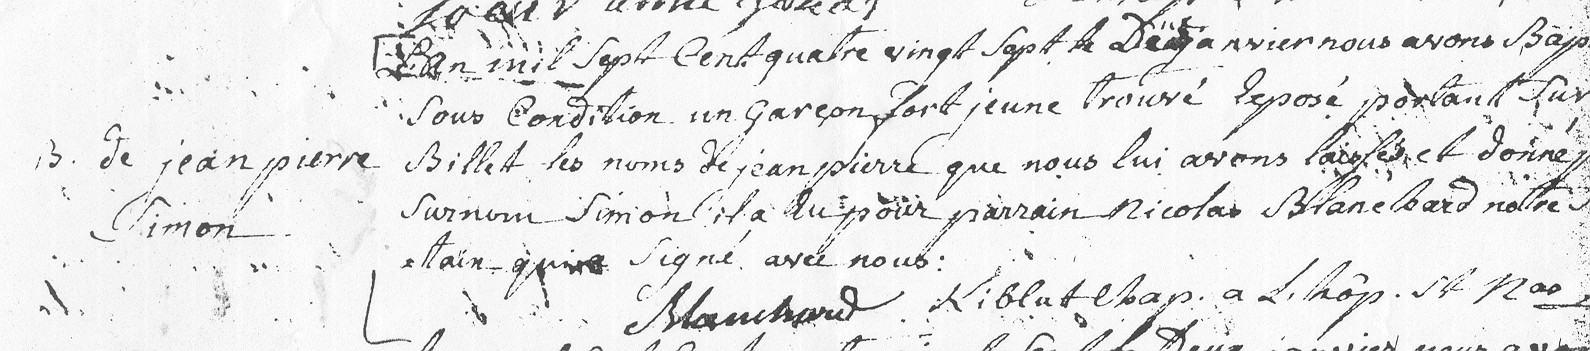 L'an mil Sept Cent quatre vingt Sept le Deux janvier nous avons Bap
Sous Condition un garçon fort jeune trouvé deposé portant Sur
B. de jean pierre
Simon
Billet les noms de jean pierre que nous lui avons laissés et donné p
Surnom Simon il a Eu pour parrain Nicolas Blanchard notre S
etain qui a Signé avec nous:
Blanchard Chap. a L. hôp. St Nas